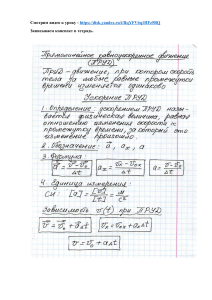 Смотрим видео к уроку -
Записываем конспект в тетрадь.
Прямолинейное равноускоренное движение
(ПРУД)
ПРУД – движение, при котором скорость
тела за любые равные промежутки
времени изменяется одинаково
Ускорение ПРУД
1. Определение: ускорением ПРУД назы-
вается физическая величина, равная
отношению изменения скорости к
промежутку времени, за который это
изменение произошло.
2. Обозначение: a⃗, aₓ, a
3. Формула:
4. Единица измерения:
СИ: [a] = [v]/[t] = м/с²
Зависимость v(t) при ПРУД
v⃗ = v⃗₀ + a⃗t vₓ = v₀ₓ + aₓt
v = v₀ + at